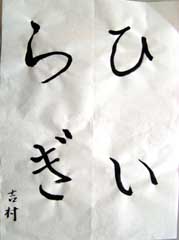 ひい
らぎ
吉村